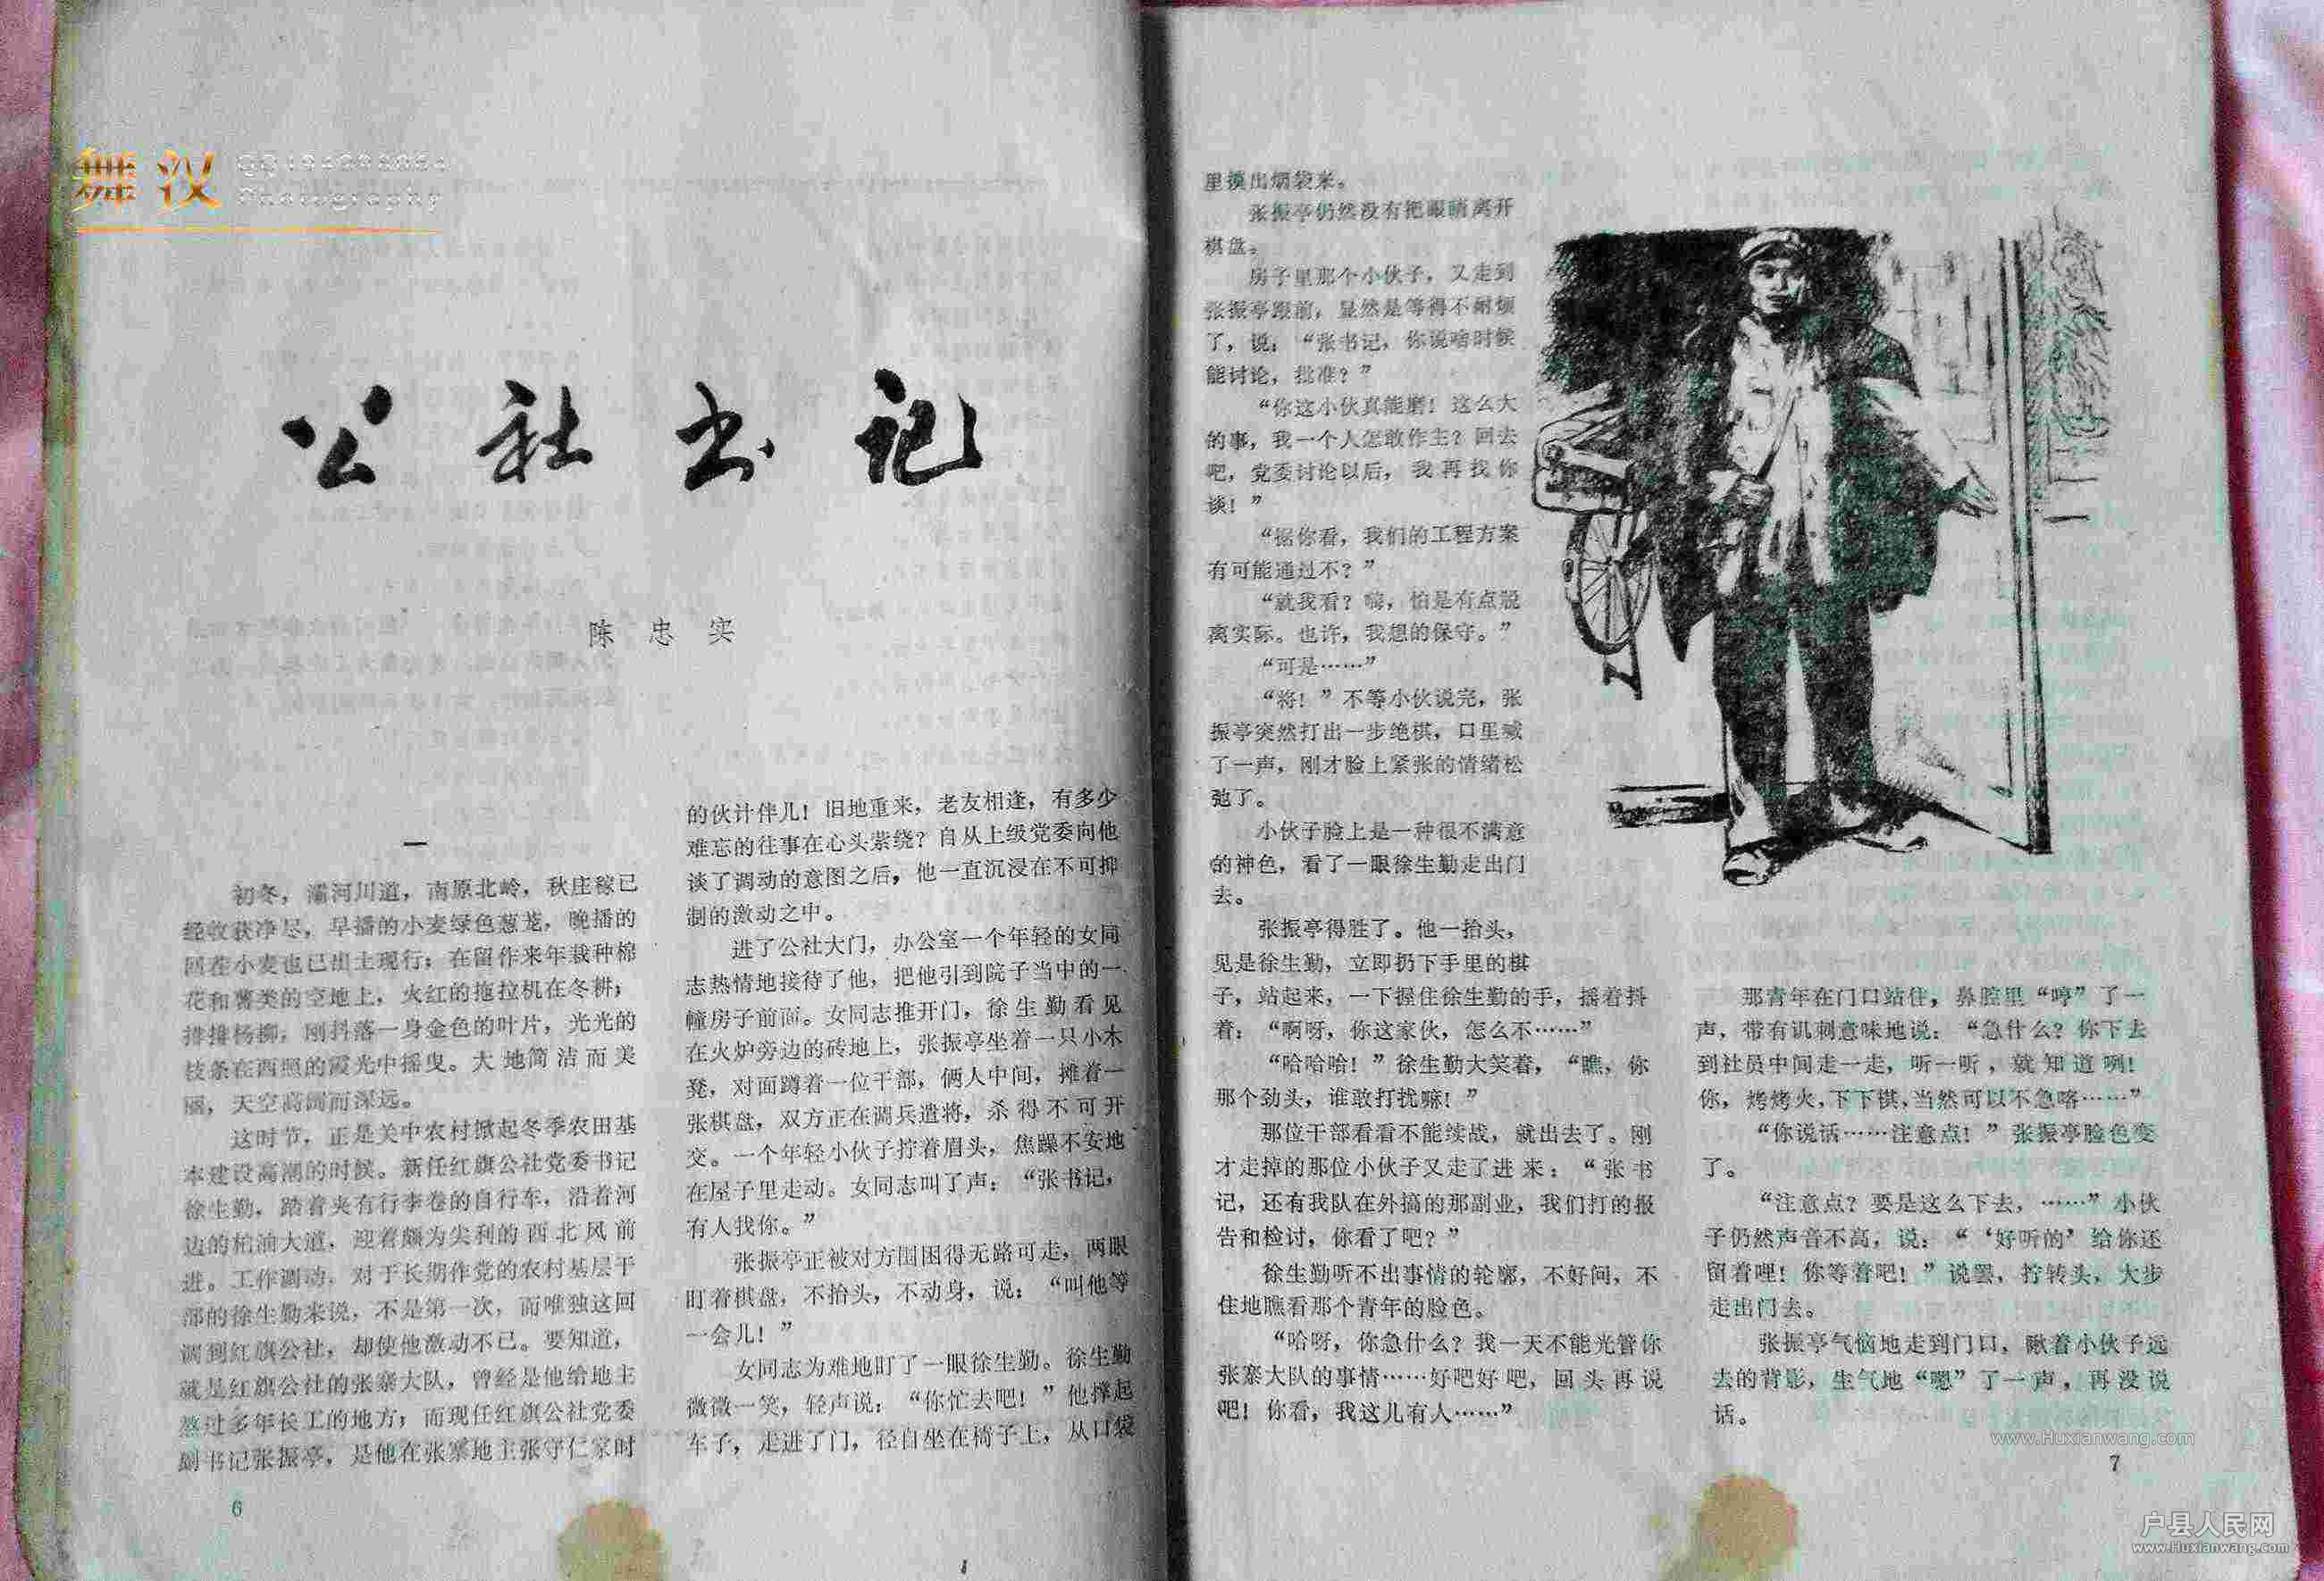 舞汉
Photography
公社书记
陈忠实
一
初冬，灞河川道，南原北岭，秋庄稼已
经收获净尽，早播的小麦绿色葱茏，晚播的
回茬小麦也已出土现行；在留作来年栽种棉
花和薯类的空地上，火红的拖拉机在冬耕；
排排杨柳，刚抖落一身金色的叶片，光光的
枝条在西照的霞光中摇曳。大地简洁而美
丽，天空高阔而深远。
这时节，正是关中农村掀起冬季农田基
本建设高潮的时候。新任红旗公社党委书记
徐生勤，踏着夹有行李卷的自行车，沿着河
边的柏油大道，迎着颇为尖利的西北风前
进。工作调动，对于长期作党的农村基层干
部的徐生勤来说，不是第一次，而唯独这回
调到红旗公社，却使他激动不已。要知道，
就是红旗公社的张寨大队，曾经是他给地主
熬过多年长工的地方；而现任红旗公社党委
副书记张振亭，是他在张寨地主张守仁家时
6
的伙计伴儿！旧地重来，老友相逢，有多少
难忘的往事在心头萦绕？自从上级党委向他
谈了调动的意图之后，他一直沉浸在不可抑
制的激动之中。
进了公社大门，办公室一个年轻的女同
志热情地接待了他，把他引到院子当中的一
幢房子前面。女同志推开门，徐生勤看见
在火炉旁边的砖地上，张振亭坐着一只小木
凳，对面蹲着一位干部，俩人中间，摊着一
张棋盘，双方正在调兵遣将，杀得不可开
交。一个年轻小伙子拧着眉头，焦躁不安地
在屋子里走动。女同志叫了声：“张书记，
有人找你。”
张振亭正被对方围困得无路可走，两眼
盯着棋盘，不抬头，不动身，说：“叫他等
一会儿！”
女同志为难地盯了一眼徐生勤。徐生勤
微微一笑，轻声说：“你忙去吧！”他撑起
车子，走进了门，径自坐在椅子上，从口袋
里摸出烟袋来。
张振亭仍然没有把眼睛离开
棋盘。
房子里那个小伙子，又走到
张振亭跟前，显然是等得不耐烦
了，说：“张书记，你说啥时候
能讨论，批准？”
“你这小伙真能磨！这么大
的事，我一个人怎敢作主？回去
吧，党委讨论以后，我再找你
谈！”
“据你看，我们的工程方案
有可能通过不？”
“就我看？嗬，怕是有点脱
离实际。也许，我想的保守。”
“可是……”
“将！”不等小伙说完，张
振亭突然打出一步绝棋，口里喊
了一声，刚才脸上紧张的情绪松
弛了。
小伙子脸上是一种很不满意
的神色，看了一眼徐生勤走出门
去。
张振亭得胜了。他一抬头，
见是徐生勤，立即扔下手里的棋
子，站起来，一下握住徐生勤的手，摇着抖
着：“啊呀，你这家伙，怎么不……”
“哈哈哈！”徐生勤大笑着，“瞧，你
那个劲头，谁敢打扰嘛！”
那位干部看看不能续战，就出去了。刚
才走掉的那位小伙子又走了进来：“张书
记，还有我队在外搞的那副业，我们打的报
告和检讨，你看了吧？”
徐生勤听不出事情的轮廓，不好问，不
住地瞧看那个青年的脸色。
“哈呀，你急什么？我一天不能光管你
张寨大队的事情……好吧好吧，回头再说
吧！你看，我这儿有人……”
那青年在门口站住，鼻腔里“哼”了一
声，带有讥刺意味地说：“急什么？你下去
到社员中间走一走，听一听，就知道咧！
你，烤烤火，下下棋，当然可以不急咯……”
“你说话……注意点！”张振亭脸色变
了。
“注意点？要是这么下去，……”小伙
子仍然声音不高，说：“‘好听的’给你还
留着哩！你等着吧！”说罢，拧转头，大步
走出门去。
张振亭气恼地走到门口，瞅着小伙子远
去的背影，生气地“嗯”了一声，再没说
话。
www.Huxianwang.com
7
户县人民网
www.Huxianwang.com